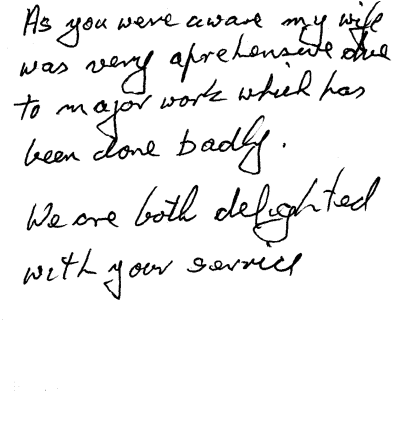 As you were aware my wife
was very aprehensive due
to major work which has
been done badly.
We are both delighted
with your service